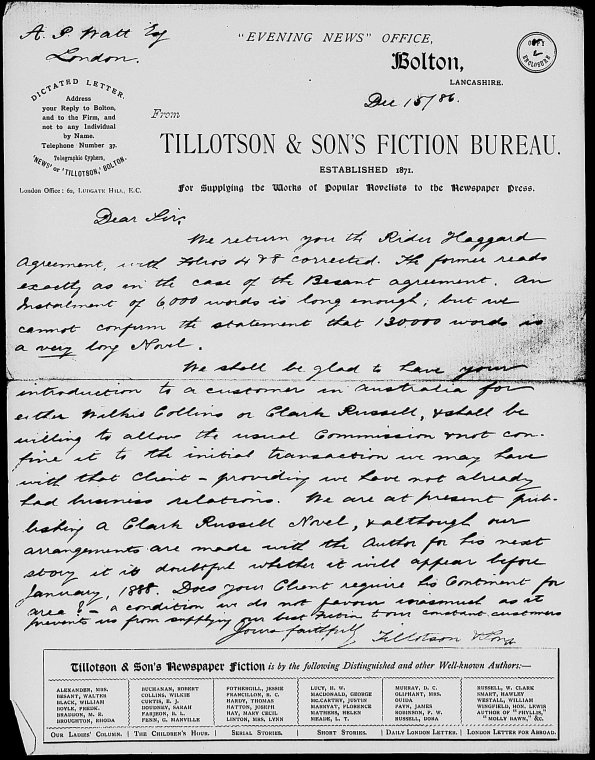 A. P. Watt Esq
London.
"EVENING NEWS" OFFICE,
Bolton,
LANCASHIRE.
Dec 15/86.
DICTATED LETTER.
Address
your Reply to Bolton,
and to the Firm, and
not to any Individual
by Name.
Telephone Number 37.
Telegraphic Cyphers,
'NEWS' or 'TILLOTSON,' BOLTON.
London Office: 62, LUDGATE HILL, E.C.
From
TILLOTSON & SON'S FICTION BUREAU.
ESTABLISHED 1871.
For Supplying the Works of Popular Novelists to the Newspaper Press.
Dear Sir,
We return you the Rider Haggard
Agreement, with Folios 4 & 8 corrected. The former reads
exactly as in the case of the Besant agreement. An
Instalment of 6,000 words is long enough; but we
cannot confirm the statement that 130000 words is
a very long Novel.
We shall be glad to have your
introduction to a customer in Australia for
either Wilkie Collins or Clark Russell, & shall be
willing to allow the usual Commission & not con-
fine it to the initial transaction we may have
with that Client – providing we have not already
had business relations. We are at present pub-
lishing a Clark Russell Novel, & although our
arrangements are made with the Author for his next
story it is doubtful whether it will appear before
January, 1888. Does your Client require his Continent for
area? – a condition we do not favour inasmuch as it
prevents us from supplying our best Fiction to our constant customers
Yours faithfully Tillotson & Son
Tillotson & Son's Newspaper Fiction is by the following Distinguished and other Well-known Authors:—
ALEXANDER, MRS.
BESANT, WALTER
BLACK, WILLIAM
BOYLE, FREDK.
BRADDON, M. E.
BROUGHTON, RHODA
BUCHANAN, ROBERT
COLLINS, WILKIE
CURTIS, E. J.
DOUDNEY, SARAH
FARJEON, B. L.
FENN, G. MANVILLE
FOTHERGILL, JESSIE
FRANCILLON, R. E.
HARDY, THOMAS
HATTON, JOSEPH
HAY, MARY CECIL
LINTON, MRS. LYNN
LUCY, H. W.
MACDONALD, GEORGE
MCCARTHY, JUSTIN
MARRYAT, FLORENCE
MATHERS, HELEN
MEADE, L. T.
MURRAY, D. C.
OLIPHANT, MRS.
OUIDA
PAYN, JAMES
ROBINSON, F. W.
RUSSELL, DORA
RUSSELL, W. CLARK
SMART, HAWLEY
WESTALL, WILLIAM
WINGFIELD, HON. LEWIS
AUTHOR OF "PHYLLIS,"
"MOLLY BAWN," &C.
OUR LADIES' COLUMN. | THE CHILDREN'S HOUR. | SERIAL STORIES. | SHORT STORIES. | DAILY LONDON LETTER. | LONDON LETTER FOR ABROAD.